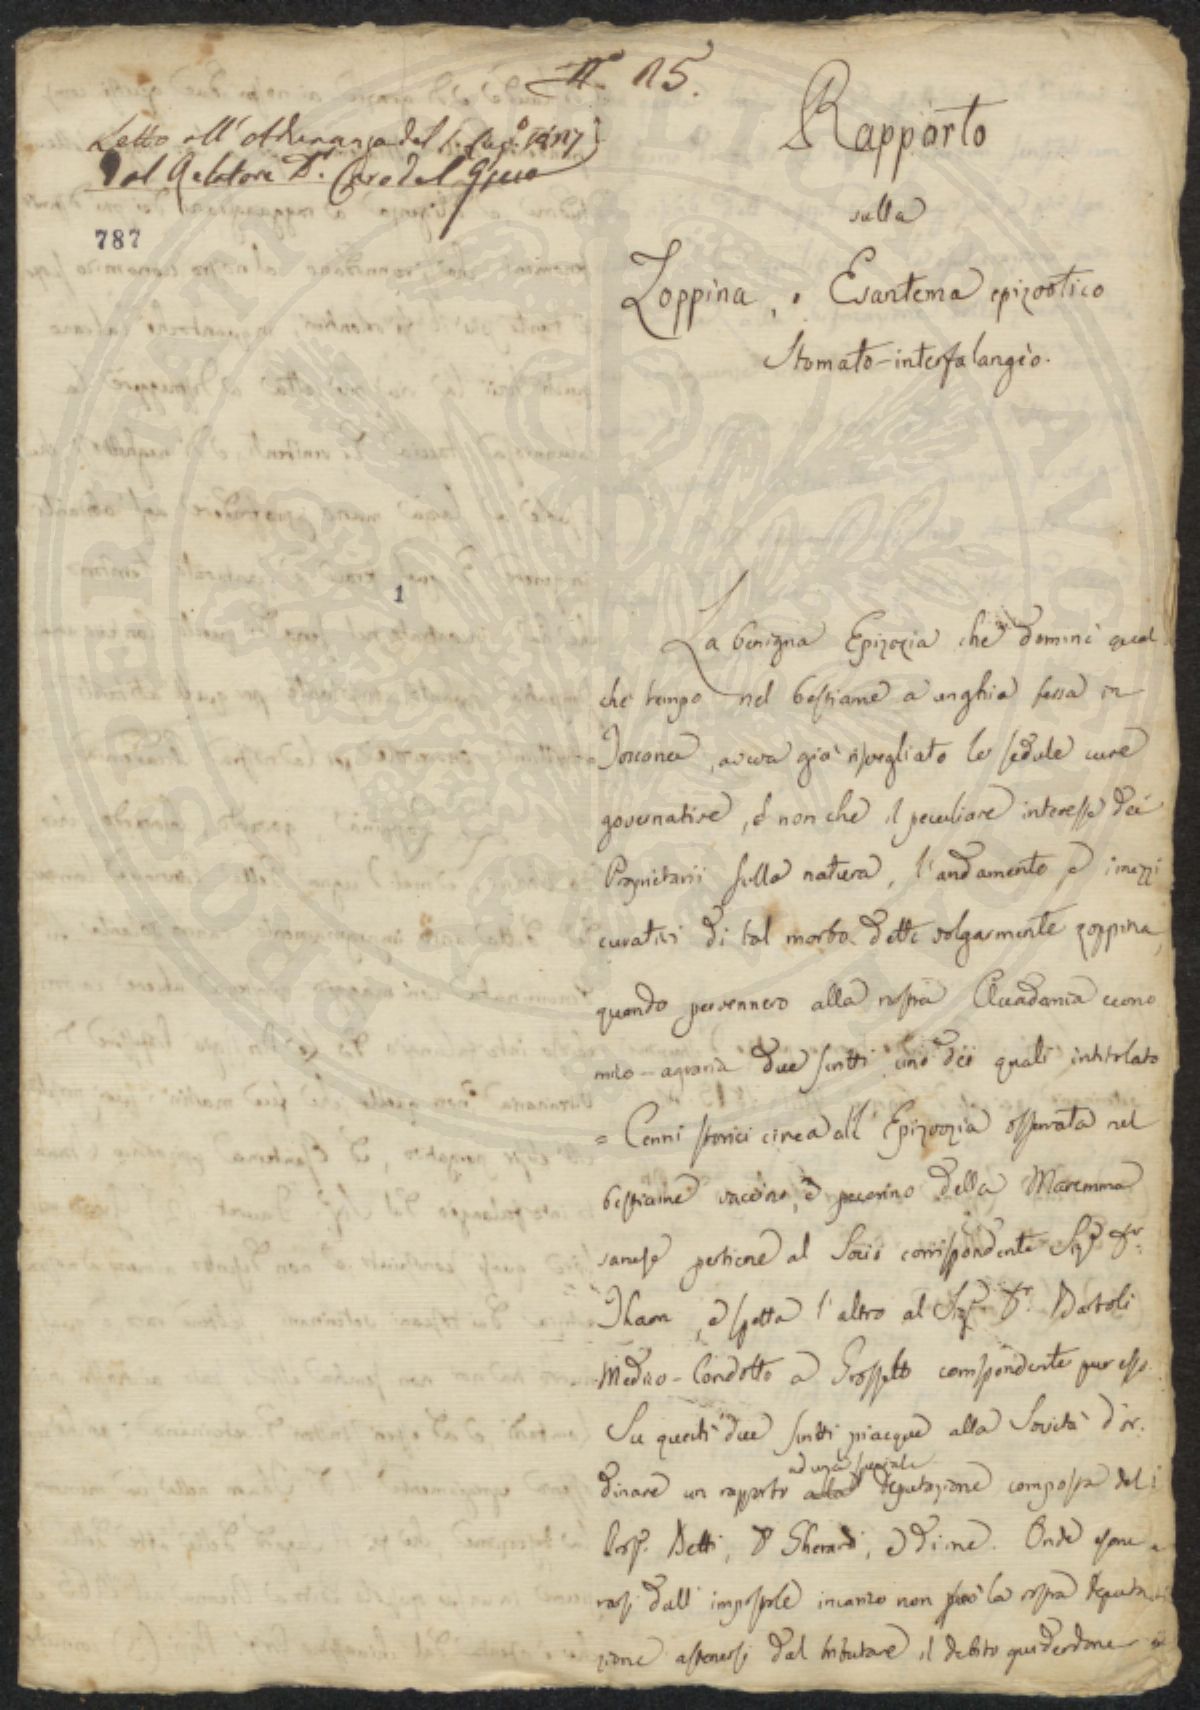 N° 15.
Letto all'Adunanza del 1. Lug° 1827
dal Relatore Dr.
787
Rapporto
sulla
Zoppina, o Esantema epizootico
Stomato-interfalangeo.
1
La benigna Epizozia che dominò qual
che tempo nel bestiame a unghia fessa in
Toscana, aveva già risvegliato le sedule cure
governative, e non che il peculiare interesse dei
Proprietarii sulla natura, l'andamento e i mezzi
curativi di tal morbo detto volgarmente zoppina,
quando pervennero alla nostra Accademia econo
mico-agraria due scritti uno dei quali intitolato
= Cenni storici circa all'Epizoozia osservata nel
bestiame vaccino, e pecorino della Maremma
sanese pertiene al Socio corrispondente Sigr. Dr.
Thaon, e spetta l'altro al Sigr. Dr. Bartoli
Medico-Condotto a Grosseto corrispondente pur esso.
Su questi due scritti piacque alla Società d'or-
ad una speciale
dinare un rapporto alla deputazione composta del
Prof. Betti, Dr Gherardi, e di me. Onde
dall' incarico non può la nostra deputa
zione astenersi dal tributare il debito guiderdone